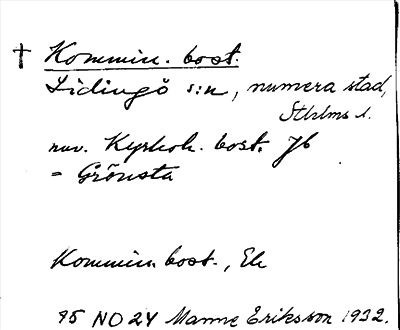 † Kommin. bost.
Lidingö s:n, numera stad,
Sthlms l.
nuv. Kyrkoh. bost. Jb
= Grönsta
Kommin. bost., Ek
95 NO 24 Manne Eriksson 1932.